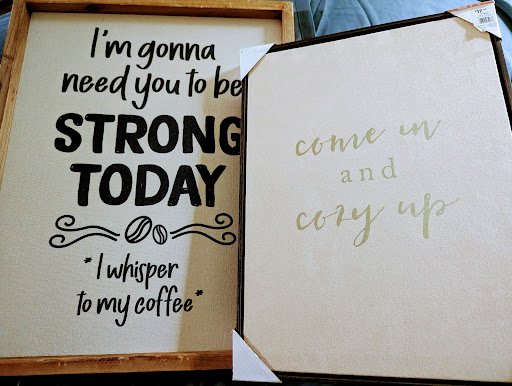 I'm gonna
need you to be
STRONG
TODAY
*I whisper
to my coffee*
come in
and
cozy up